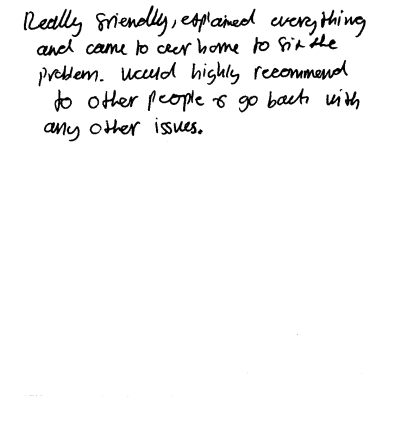 Really friendly, explained everything
and came to our home to fix the
problem. Would highly recommend
to other people & go back with
any other issues.